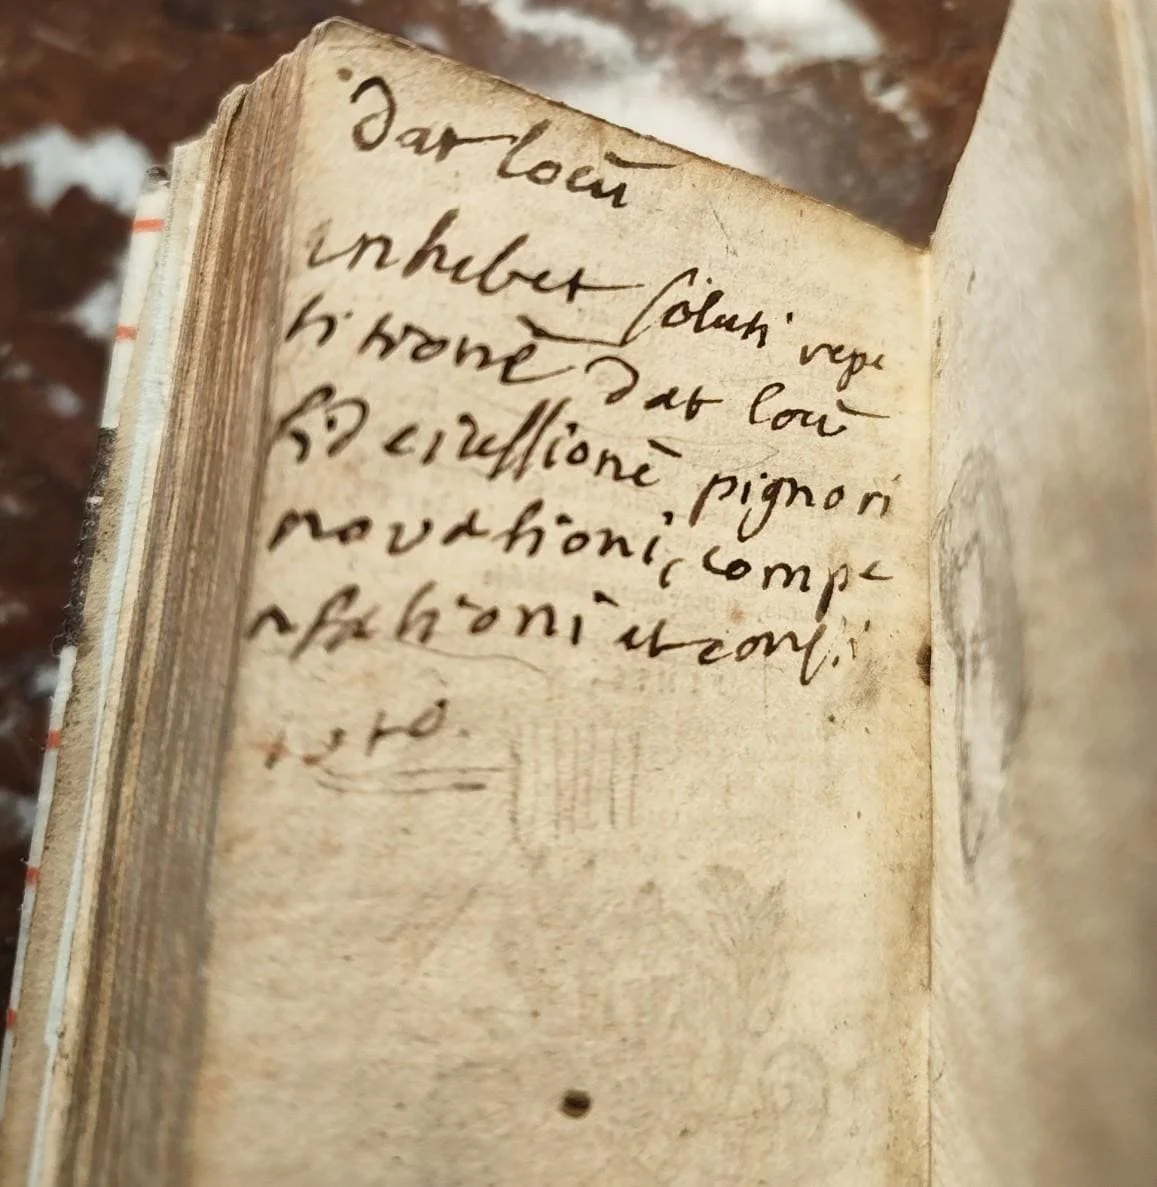 Dat locū
inhebet soluti repe
titionē Dat locū
fideiussionē pignori
novationi, compe
nsationi et consti
tuto.